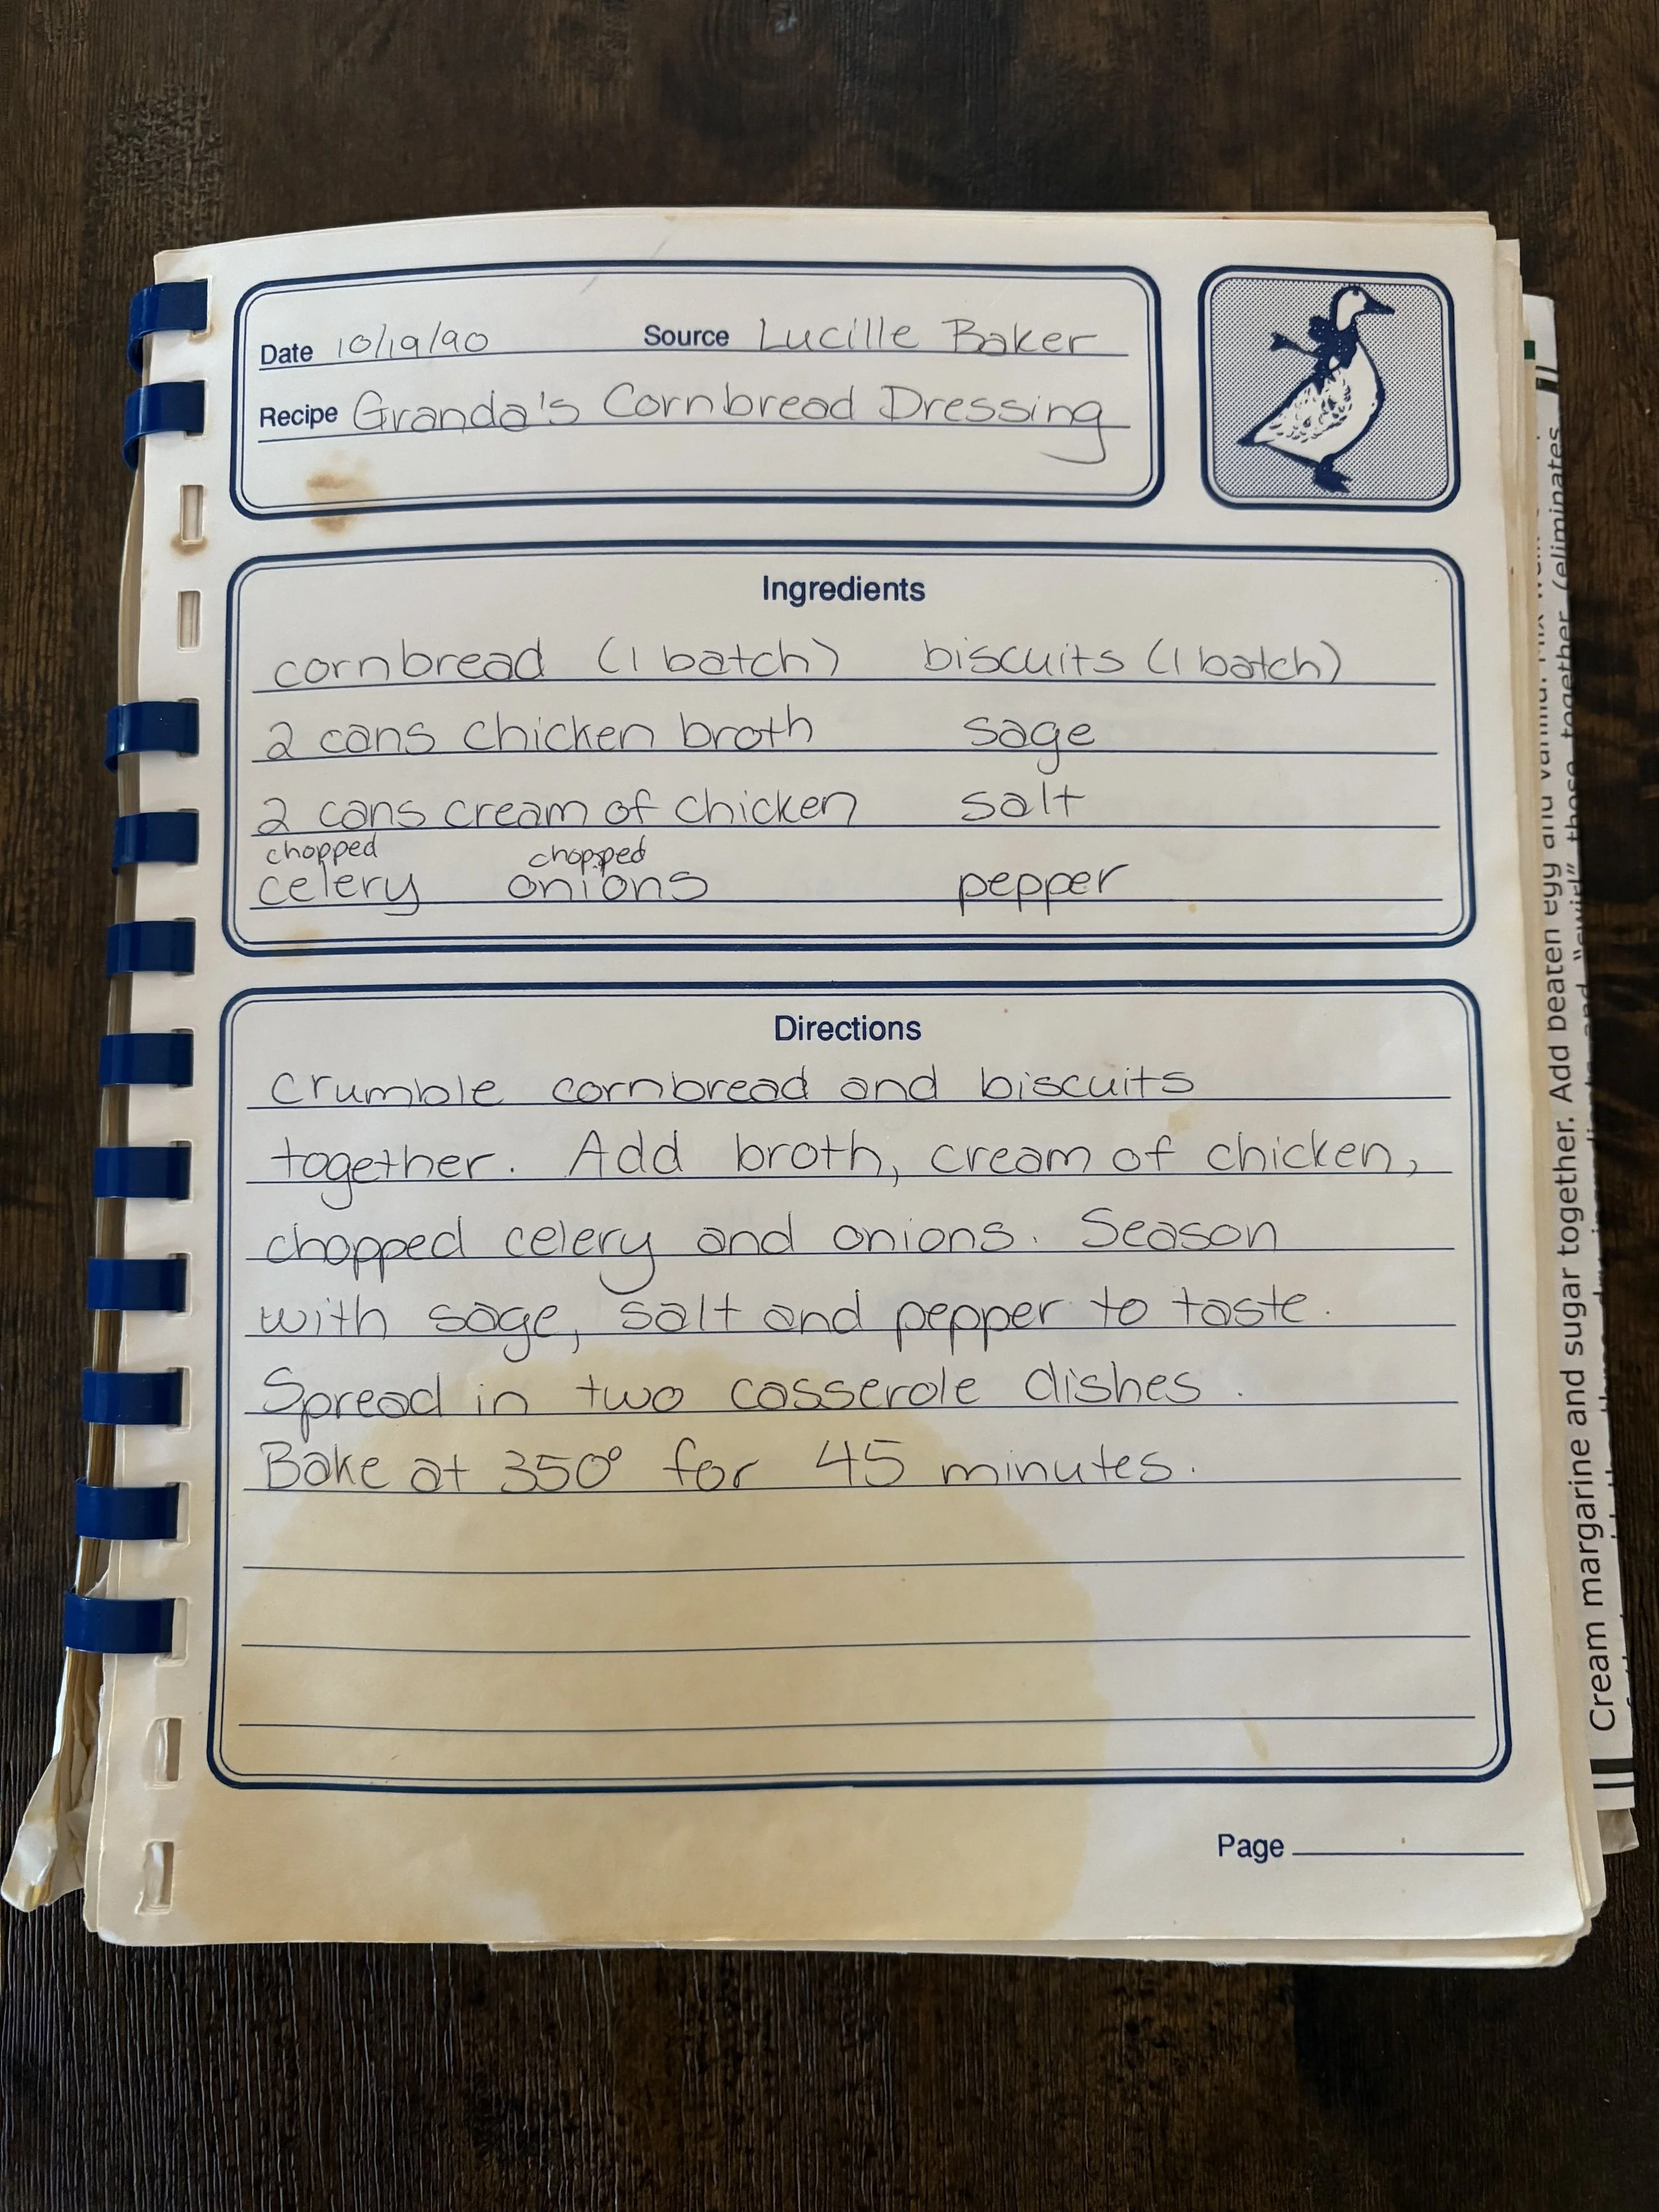 Date 10/19/90 Source Lucille Baker
Recipe Granda's Cornbread Dressing
Ingredients
cornbread (1 batch) biscuits (1 batch)
2 cans chicken broth sage
2 cans cream of chicken salt
chopped chopped
celery onions pepper
Directions
crumble cornbread and biscuits
together. Add broth, cream of chicken,
chopped celery and onions. Season
with sage, salt and pepper to taste.
Spread in two casserole dishes.
Bake at 350° for 45 minutes.
Page
Cream margarine and sugar together. Add beaten egg and vanilla.
these together (eliminates